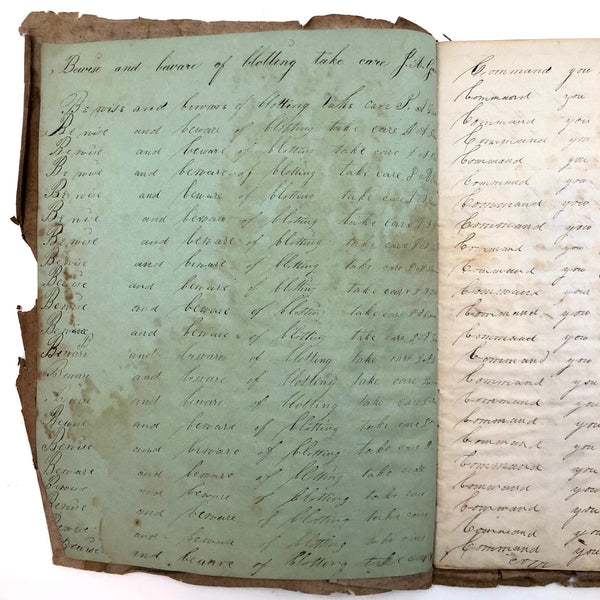 Bewise and beware of blotting take care J. A.
Bewise and beware of blotting take care J. A
Bewise and beware of blotting take care J A
Bewise and beware of blotting take care J A
Bewise and beware of blotting take care J A
Bewise and beware of blotting take care J
Bewise and beware of blotting take care J
Bewise and beware of blotting take care J
Bewise and beware of blotting take care
Bewise and beware of blotting take care
Bewise and beware of blotting take care
Bewise and beware of blotting take care
Beware and beware of blotting take care
Beware and beware of blotting take care
and beware of blotting take care
Bewise and beware of blotting take care
Bewise and beware of blotting take care
Beware and beware of blotting take care
Bewise and beware of blotting take care
Bewise and beware of blotting take care
Bewise and beware of blotting take care
Bewise and beware of blotting take care
Command you
Command you
Command you
Command you
Command you
Command you
Command you
Command you
Command you
Command you
Command you
Command you
Command you
Command you
Command you
Command you
Command you
Command you
Command you
Command you
Command you
Command you